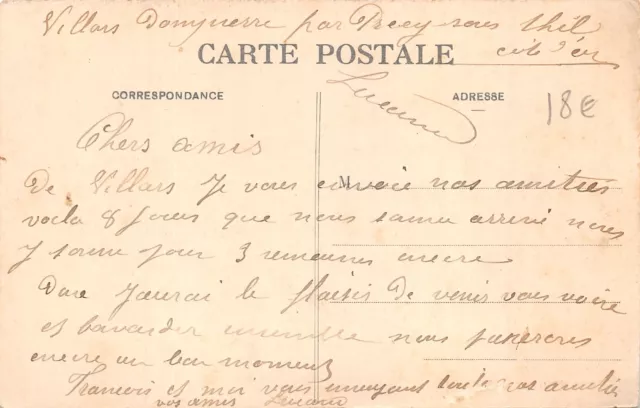 Villars Dompierre par Precy sous thil
cote d'or
CARTE POSTALE
CORRESPONDANCE
ADRESSE
18€
Lucand
Chers amis
M
De Villars Je vous envoie nos amitiés
voila 8 Jours que nous somm arrivé nous
y somm pour 3 semaines encore
Donc J'aurai le plaisir De venir vous voire
et bavarder ensemble nous passeres
encore un bon moment
Francois et moi vous envoyent toute nos amitiés
vos amis Lucand